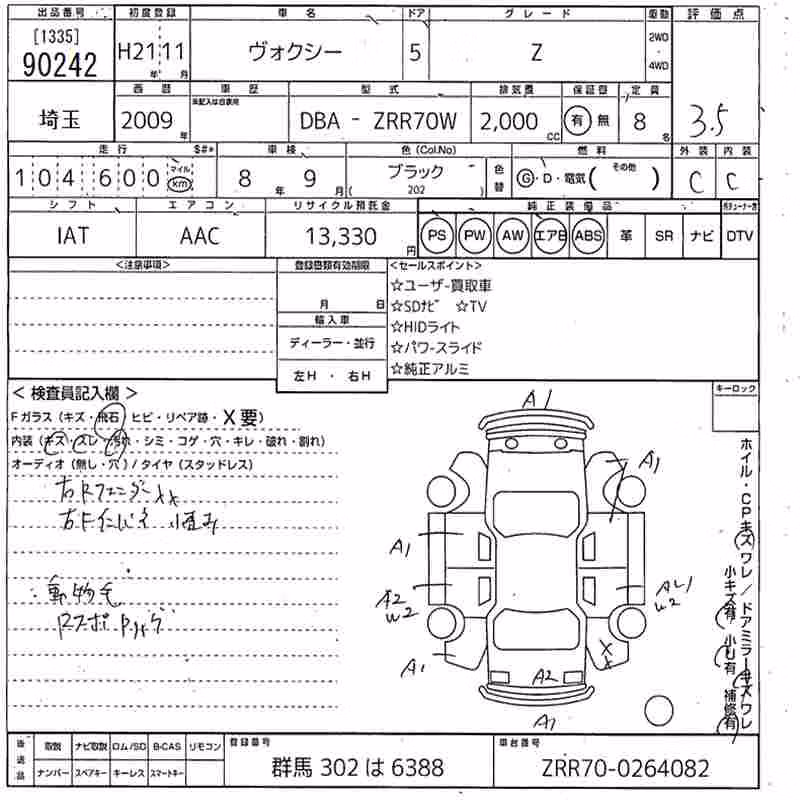 出品番号 初度登録 車名 ドア グレード 駆動 評価点
[1335]
90242 H21 11 ヴォクシー 5 Z 2WD・4WD
年 月
西暦 車歴 型式 排気量 保証書 定員
未記入は自家用
埼玉 2009年 DBA - ZRR70W 2,000cc 有 無 8名 3.5
走行 S#* 車検 色(Col.No) 燃料 外装 内装
104600 マイル km 8年 9月 ブラック ( 202 ) 色替 G・D・電気( その他 ) C C
シフト エアコン リサイクル預託金 純正装備品
IAT AAC 13,330円 PS PW AW エアB ABS 革 SR ナビ DTV
<注意事項> 登録書類有効期限 <セールスポイント>
月 日
☆ユーザー買取車
☆SDナビ ☆TV
輸入車
☆HIDライト
ディーラー・並行
☆パワースライド
左H・右H
☆純正アルミ
<検査員記入欄> キーロック
Fガラス(キズ・飛石 ヒビ・リペア跡・X要)
内装(キズ・スレ・汚れ・シミ・コゲ・穴・キレ・破れ・割れ)
オーディオ(無し・穴)/タイヤ(スタッドレス)
右Rフェンダー XX
右Fインパネ
動物毛
A1
A1
A1
A2
W2
W2
A1
XX
A2
A1
ホイル・CPキズワレ/ドアミラーキズワレ
小キズ有 小U有 補修有
後送品 取説 ナビ取説 ロム/SD B-CAS リモコン 登録番号 車台番号
ナンバー スペアキー キーレス スマートキー
群馬 302 は 6388 ZRR70-0264082